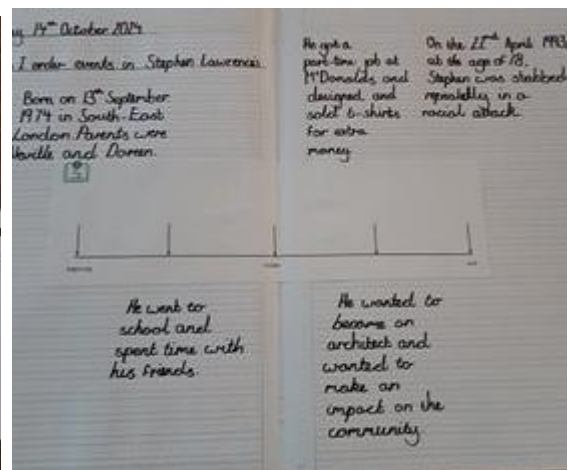 14th October 2024
I order events in Stephen Lawrence's
Born on 13th September
1974 in South-East
London Parents were
Neville and Doreen.
He got a
part-time job at
McDonalds and
designed and
sold t-shirts
for extra
money
On the 22nd April 1993
at the age of 18,
Stephen was stabbed
repeatedly in a
racial attack.
He went to
school and
spent time with
his friends.
He wanted to
become an
architect and
wanted to
make an
impact on the
community.